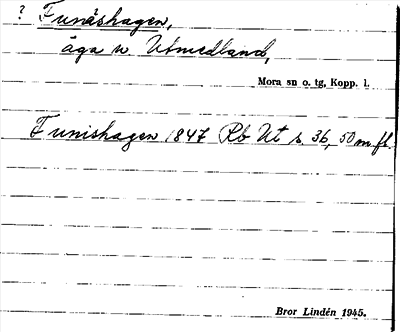 ? Funäshagen,
äga u. Utmedland,
Mora sn o. tg, Kopp. l.
Funishagen 1847 Rb Ut s. 36, 50 m. fl.
Bror Lindén 1945.